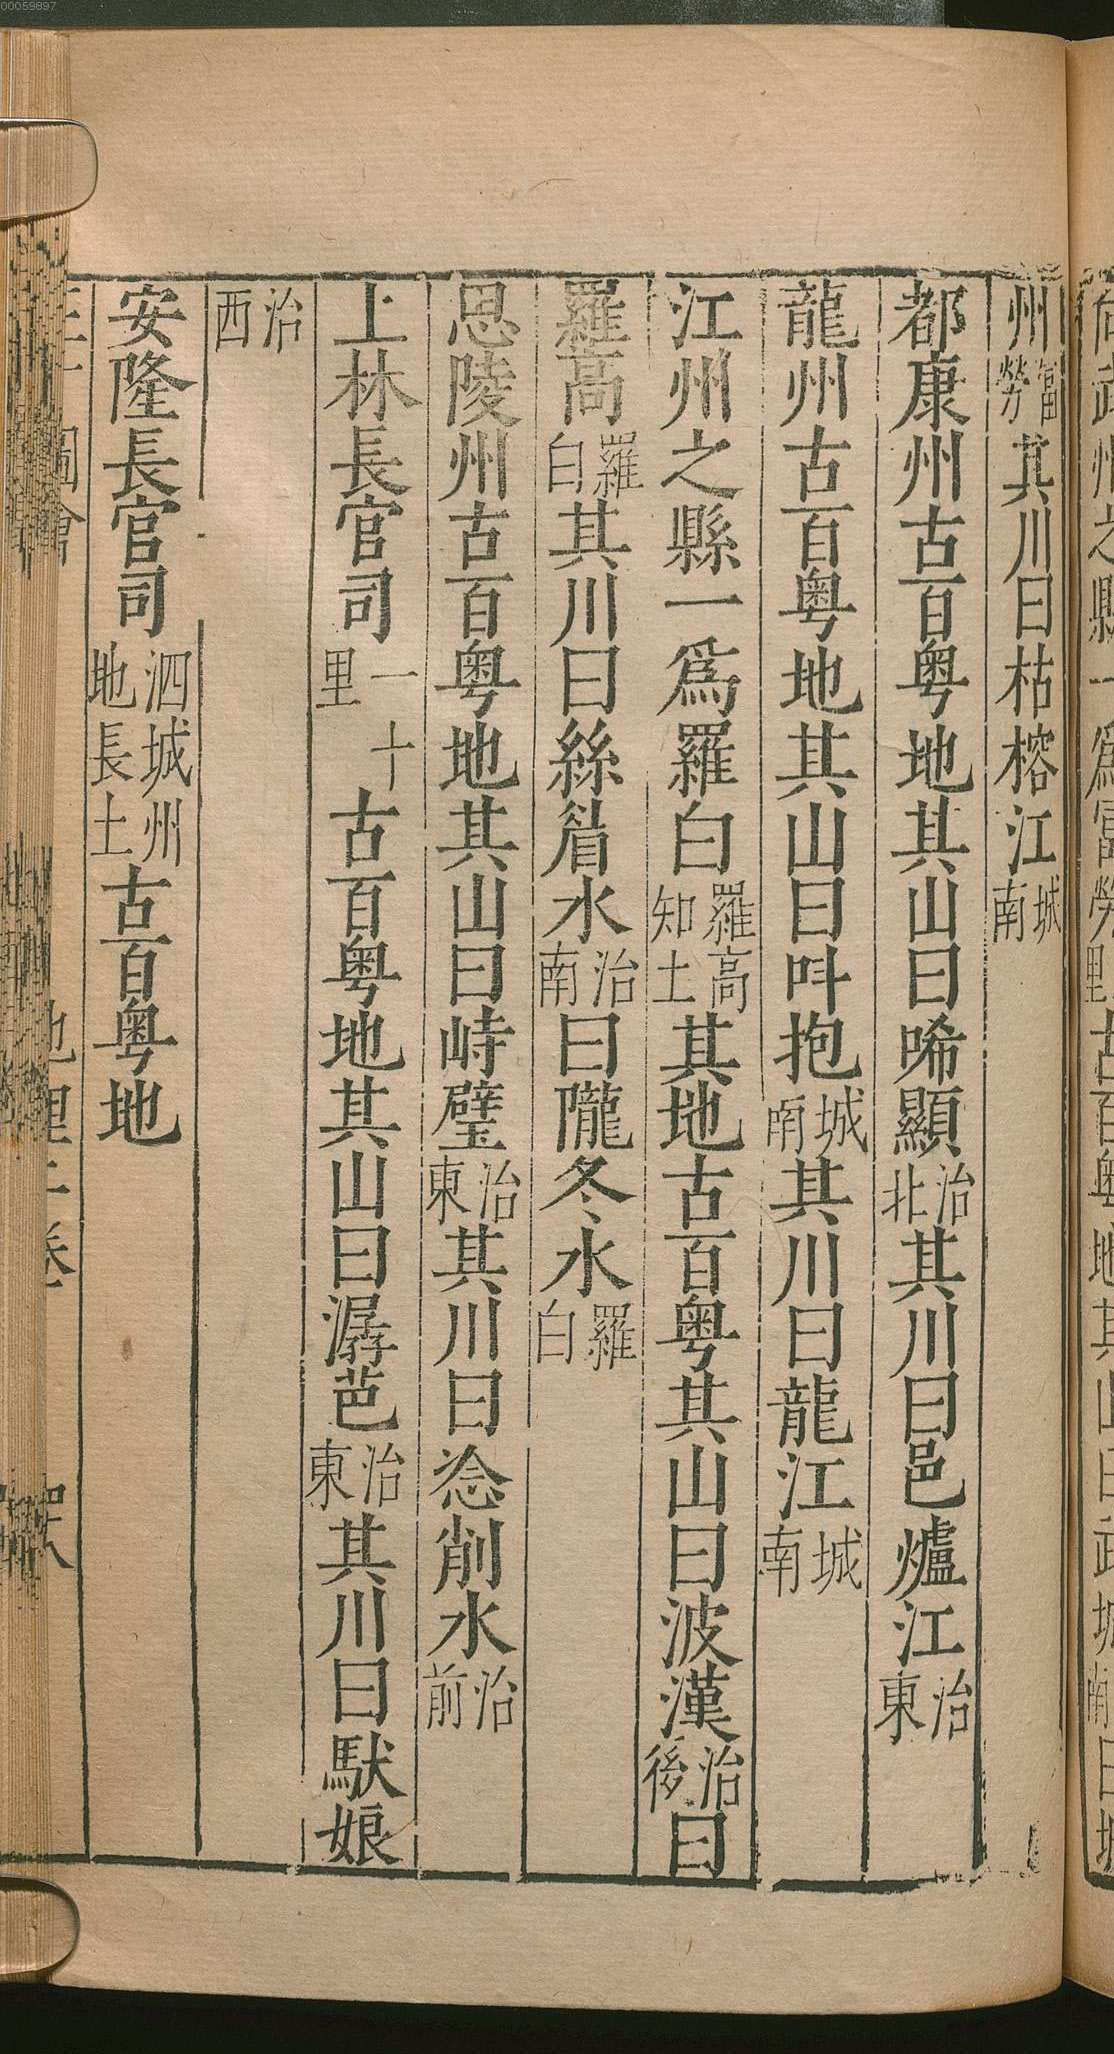 00059897
州富勞其川曰枯榕江城南
都康州古百粤地其山曰唏顯治北其川曰邑爐江治東
龍州古百粤地其山曰呌抱城南其川曰龍江城南
江州之縣一爲羅白羅高知土其地古百粤其山曰波漢治後曰
羅高羅白其川曰絲眉水治南曰隴冬水羅白
思陵州古百粤地其山曰峙壁治東其川曰淰削水治前
上林長官司一十里古百粤地其山曰潺芭治東其川曰馱娘
治西
安隆長官司泗城州地長土古百粤地